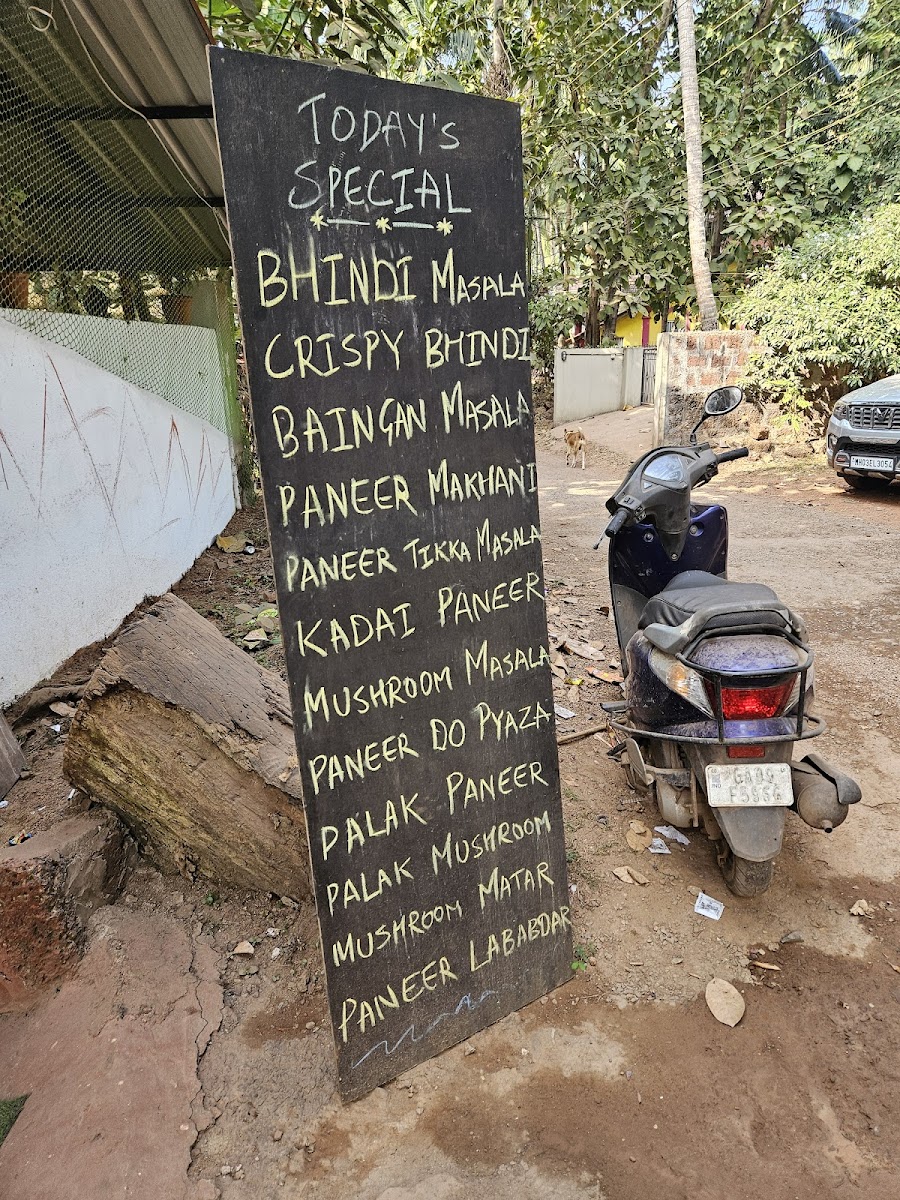 TODAY'S
SPECIAL
BHINDI MASALA
CRISPY BHINDI
BAINGAN MASALA
PANEER MAKHANI
PANEER TIKKA MASALA
KADAI PANEER
MUSHROOM MASALA
PANEER DO PYAZA
PALAK PANEER
PALAK MUSHROOM
MUSHROOM MATAR
PANEER LABABDAR
MH03EL3054